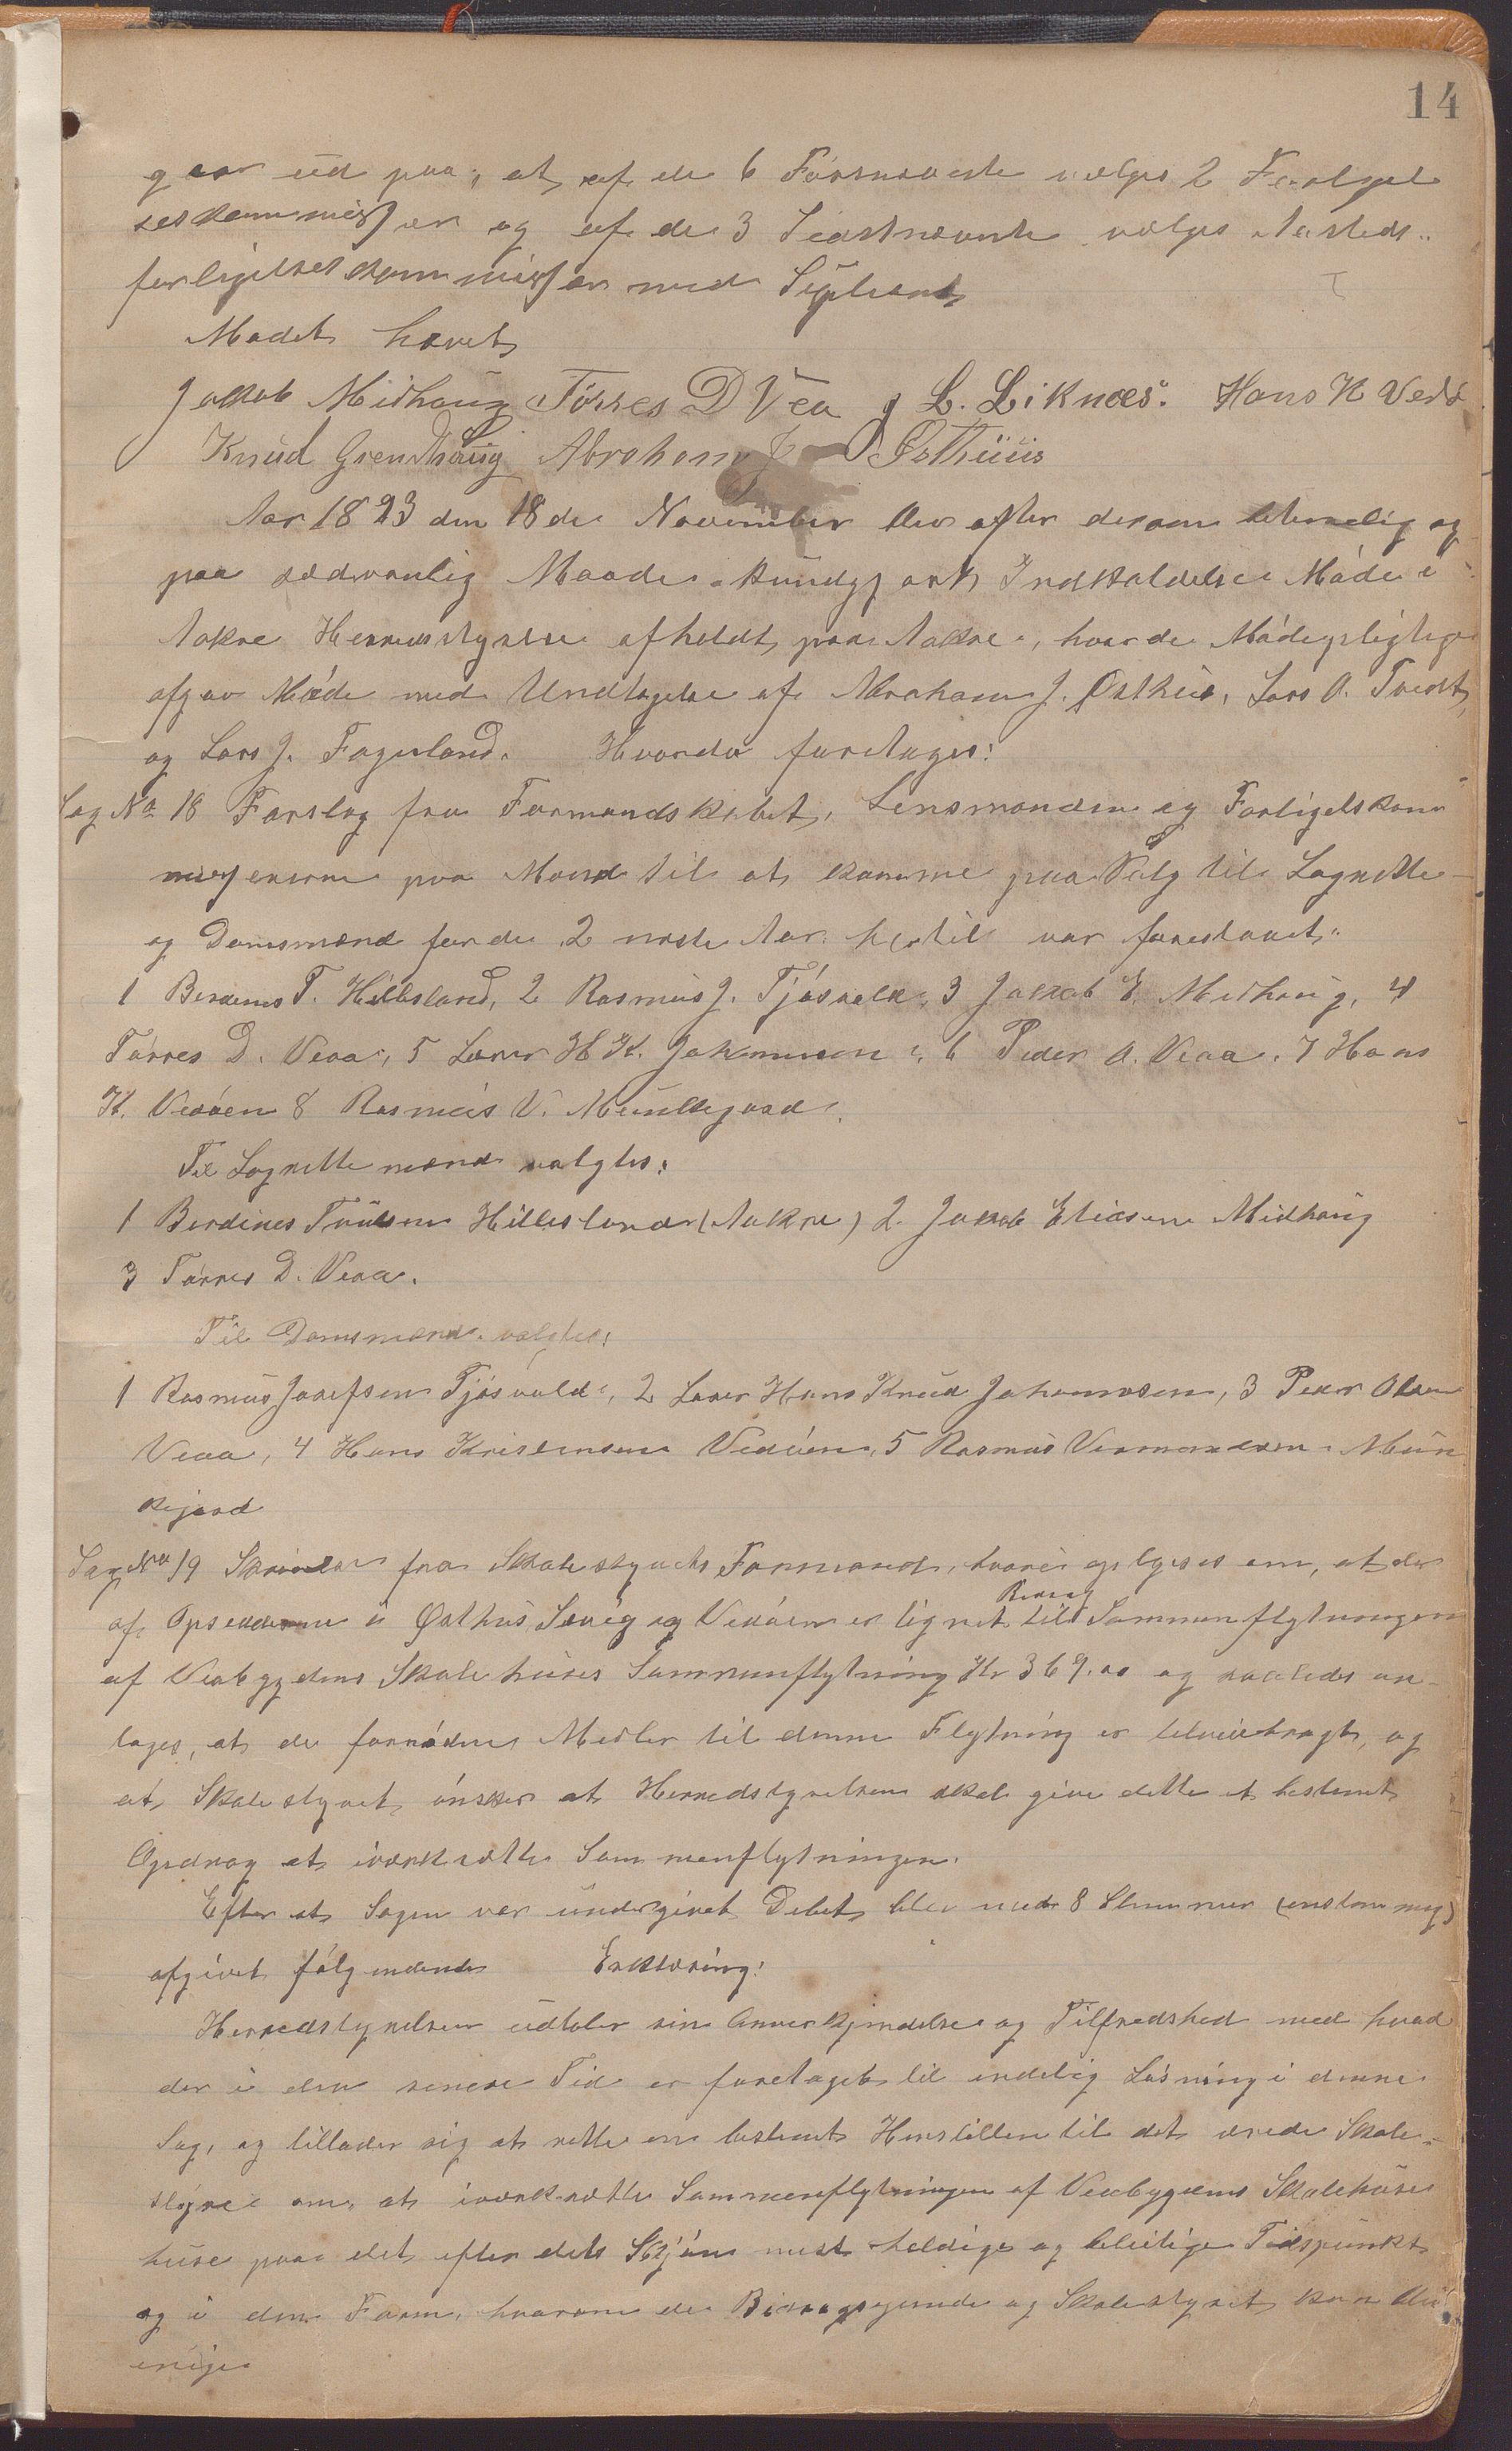 14
gaar ud paa, at af de 6 Førsnævnte vælges 2 Forligel
seskommissær og af de 3 Sidstnævnte vælges Asteds-
forligelseskommissær med Supleant
Mødet hævet
Jakob Midhaug Tørres D Vea J L. Liknæs. Hans K Vedø
Knud Grendhaug Abraham J Østhuus
Aar 1893 den 18de November blev efter derom betimelig og
paa sædvanlig Maade kundgjort Indkaldelse Møde i
Aakre Herredsstyrelse afholdt paa Aakre, hvor de Mødepligtige
afgav Møde med Undtagelse af Abraham J. Østhus, Lars A. Tveit
og Lars J. Fagerland. Hvorda foretages:
Sag No 18 Forslag fra Formandskabet, Lensmanden og Forligelskom
missærerne paa Mænd til at komme paa Valg til Lagrette
og Domsmænd for de 2 næste Aar. hertil var foreslaaet:
1 Berdines T. Hillesland, 2 Rasmus J. Tjøsvold, 3 Jakob E. Midhaug, 4
Tørres D. Veaa, 5 Lærer H K. Johannesen, 6 Peder O. Veaa, 7 Hans
K. Vedøen 8 Rasmus V. Munkejord.
Til Lagrettemænd valgtes:
1 Berdines Truelsen Hillesland (Aakre) 2 Jakob Eliasen Midhaug
3 Tørres D. Veaa.
Til Domsmænd valgtes:
1 Rasmus Josefsen Tjøsvold, 2 Lærer Hans Knud Johannesen, 3 Peder Olsen
Veaa, 4 Hans Kristensen Vedøen, 5 Rasmus Vermundsen Mun
kejord
Sag No 19 Skrivelse fra Skolestyrets Formand, hvori oplyses om, at der
af Opsidderne i Østhus, Sævig og Vedøen er lignet Bidrag til Sammenflytningen
af Veabygdens Skolehuses Sammenflytning Kr 369.00 og saaledes an-
tages, at de fornødne Midler til denne Flytning er tilveiebragt, og
at Skolestyret ønsker at Herredsstyrelsen skal give dette et bestemt
Opdrag at iværksætte Sammenflytningen.
Efter at Sagen var undergivet Debat blev med 8 Stemmer (enstemmig)
afgivet følgendende Erklæring:
Herredstyrelsen udtaler sin Anerkjendelse og Tilfredshed med hvad
der i den senere Tid er foretaget til endelig Løsning i denne
Sag, og tillader sig at rette en bestemt Henstillen til det ærede Skole-
styre om at iværksætte Sammenflytningen af Veabygdens Skolehuse
huse paa det efter dets Skjøn mest heldige og beleilige Tidspunkt
og i den Form, hvorom de Bidragsydende og Skolestyret kan blive
enige